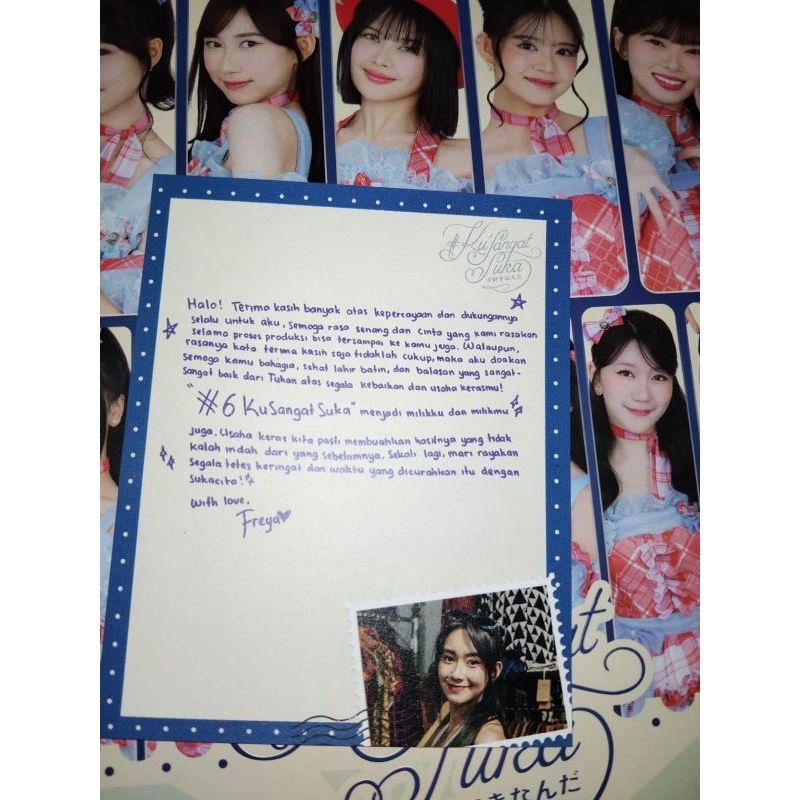 #KuSangat
Suka
#好きなんだ
Halo! Terima kasih banyak atas kepercayaan dan dukungannya
selalu untuk aku, semoga rasa senang dan cinta yang kami rasakan
selama proses produksi bisa tersampai ke kamu juga. Walaupun,
rasanya kata terima kasih saja tidaklah cukup, maka aku doakan
semoga kamu bahagia, sehat lahir batin, dan balasan yang sangat-
sangat baik dari Tuhan atas segala kebaikan dan usaha kerasmu!
"#6 KuSangatSuka" menjadi milikku dan milikmu
juga. Usaha keras kita pasti membuahkan hasilnya yang tidak
kalah indah dari yang sebelumnya. Sekali lagi, mari rayakan
segala tetes keringat dan waktu yang dicurahkan itu dengan
sukacita!
With love,
Freya
at
uka
きなんだ